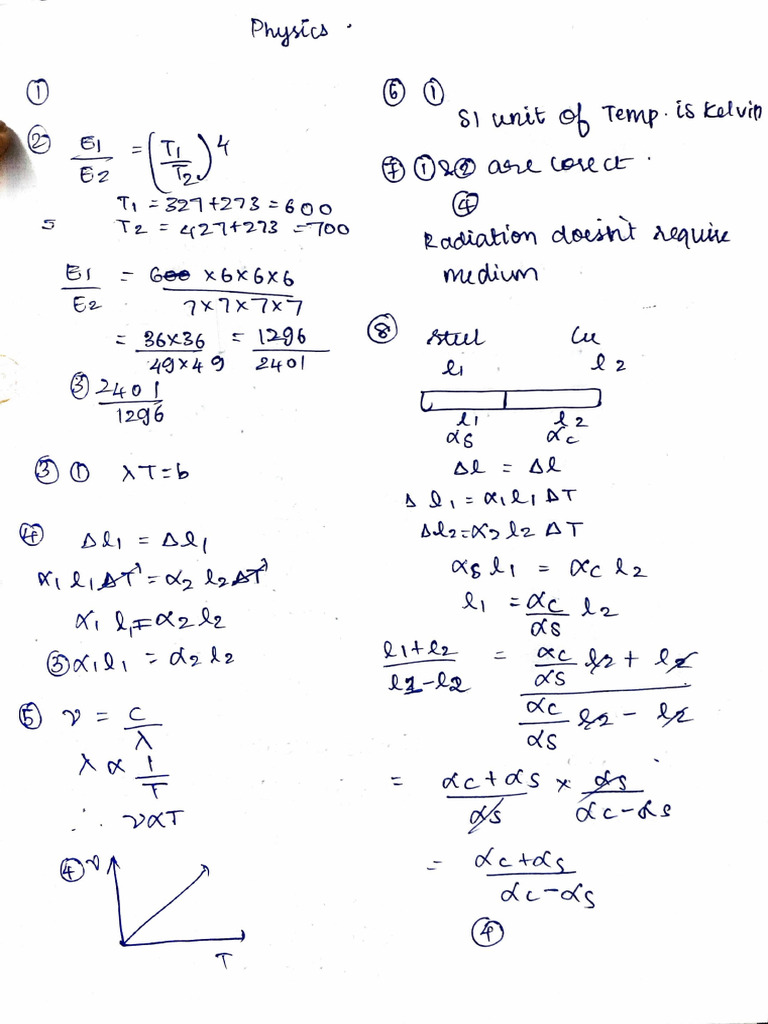 Physics .
①
② E1/E2 = (T1/T2)4
T1 = 327+273 = 600
T2 = 427+273 = 700
E1/E2 = 600 ×6×6×6 / 7×7×7×7
= 36×36/49×49 = 1296/2401
③ 2401/1296
③ ① λT=b
④ Δl1 = Δl1
α1 l1 ΔT = α2 l2 ΔT
α1 l1 = α2 l2
③ α1l1 = α2l2
⑤ ν = C/λ
λ ∝ 1/T
∴ ν∝T
④ ν
T
⑥ ①
SI unit of Temp. is Kelvin
⑦ ① & ② are corect .
④
Radiation doesn't require
medium
⑧ steel Cu
l1 l2
l1 l2
αs αc
Δl = Δl
Δl1 = α1l1 ΔT
Δl2=α2 l2 ΔT
αs l1 = αc l2
l1 = αc/αs l2
l1+l2/l1-l2 = αc/αs l2 + l2 / αc/αs l2 - l2
= αc+αs/αs × αs/αc-αs
= αc+αs/αc-αs
④